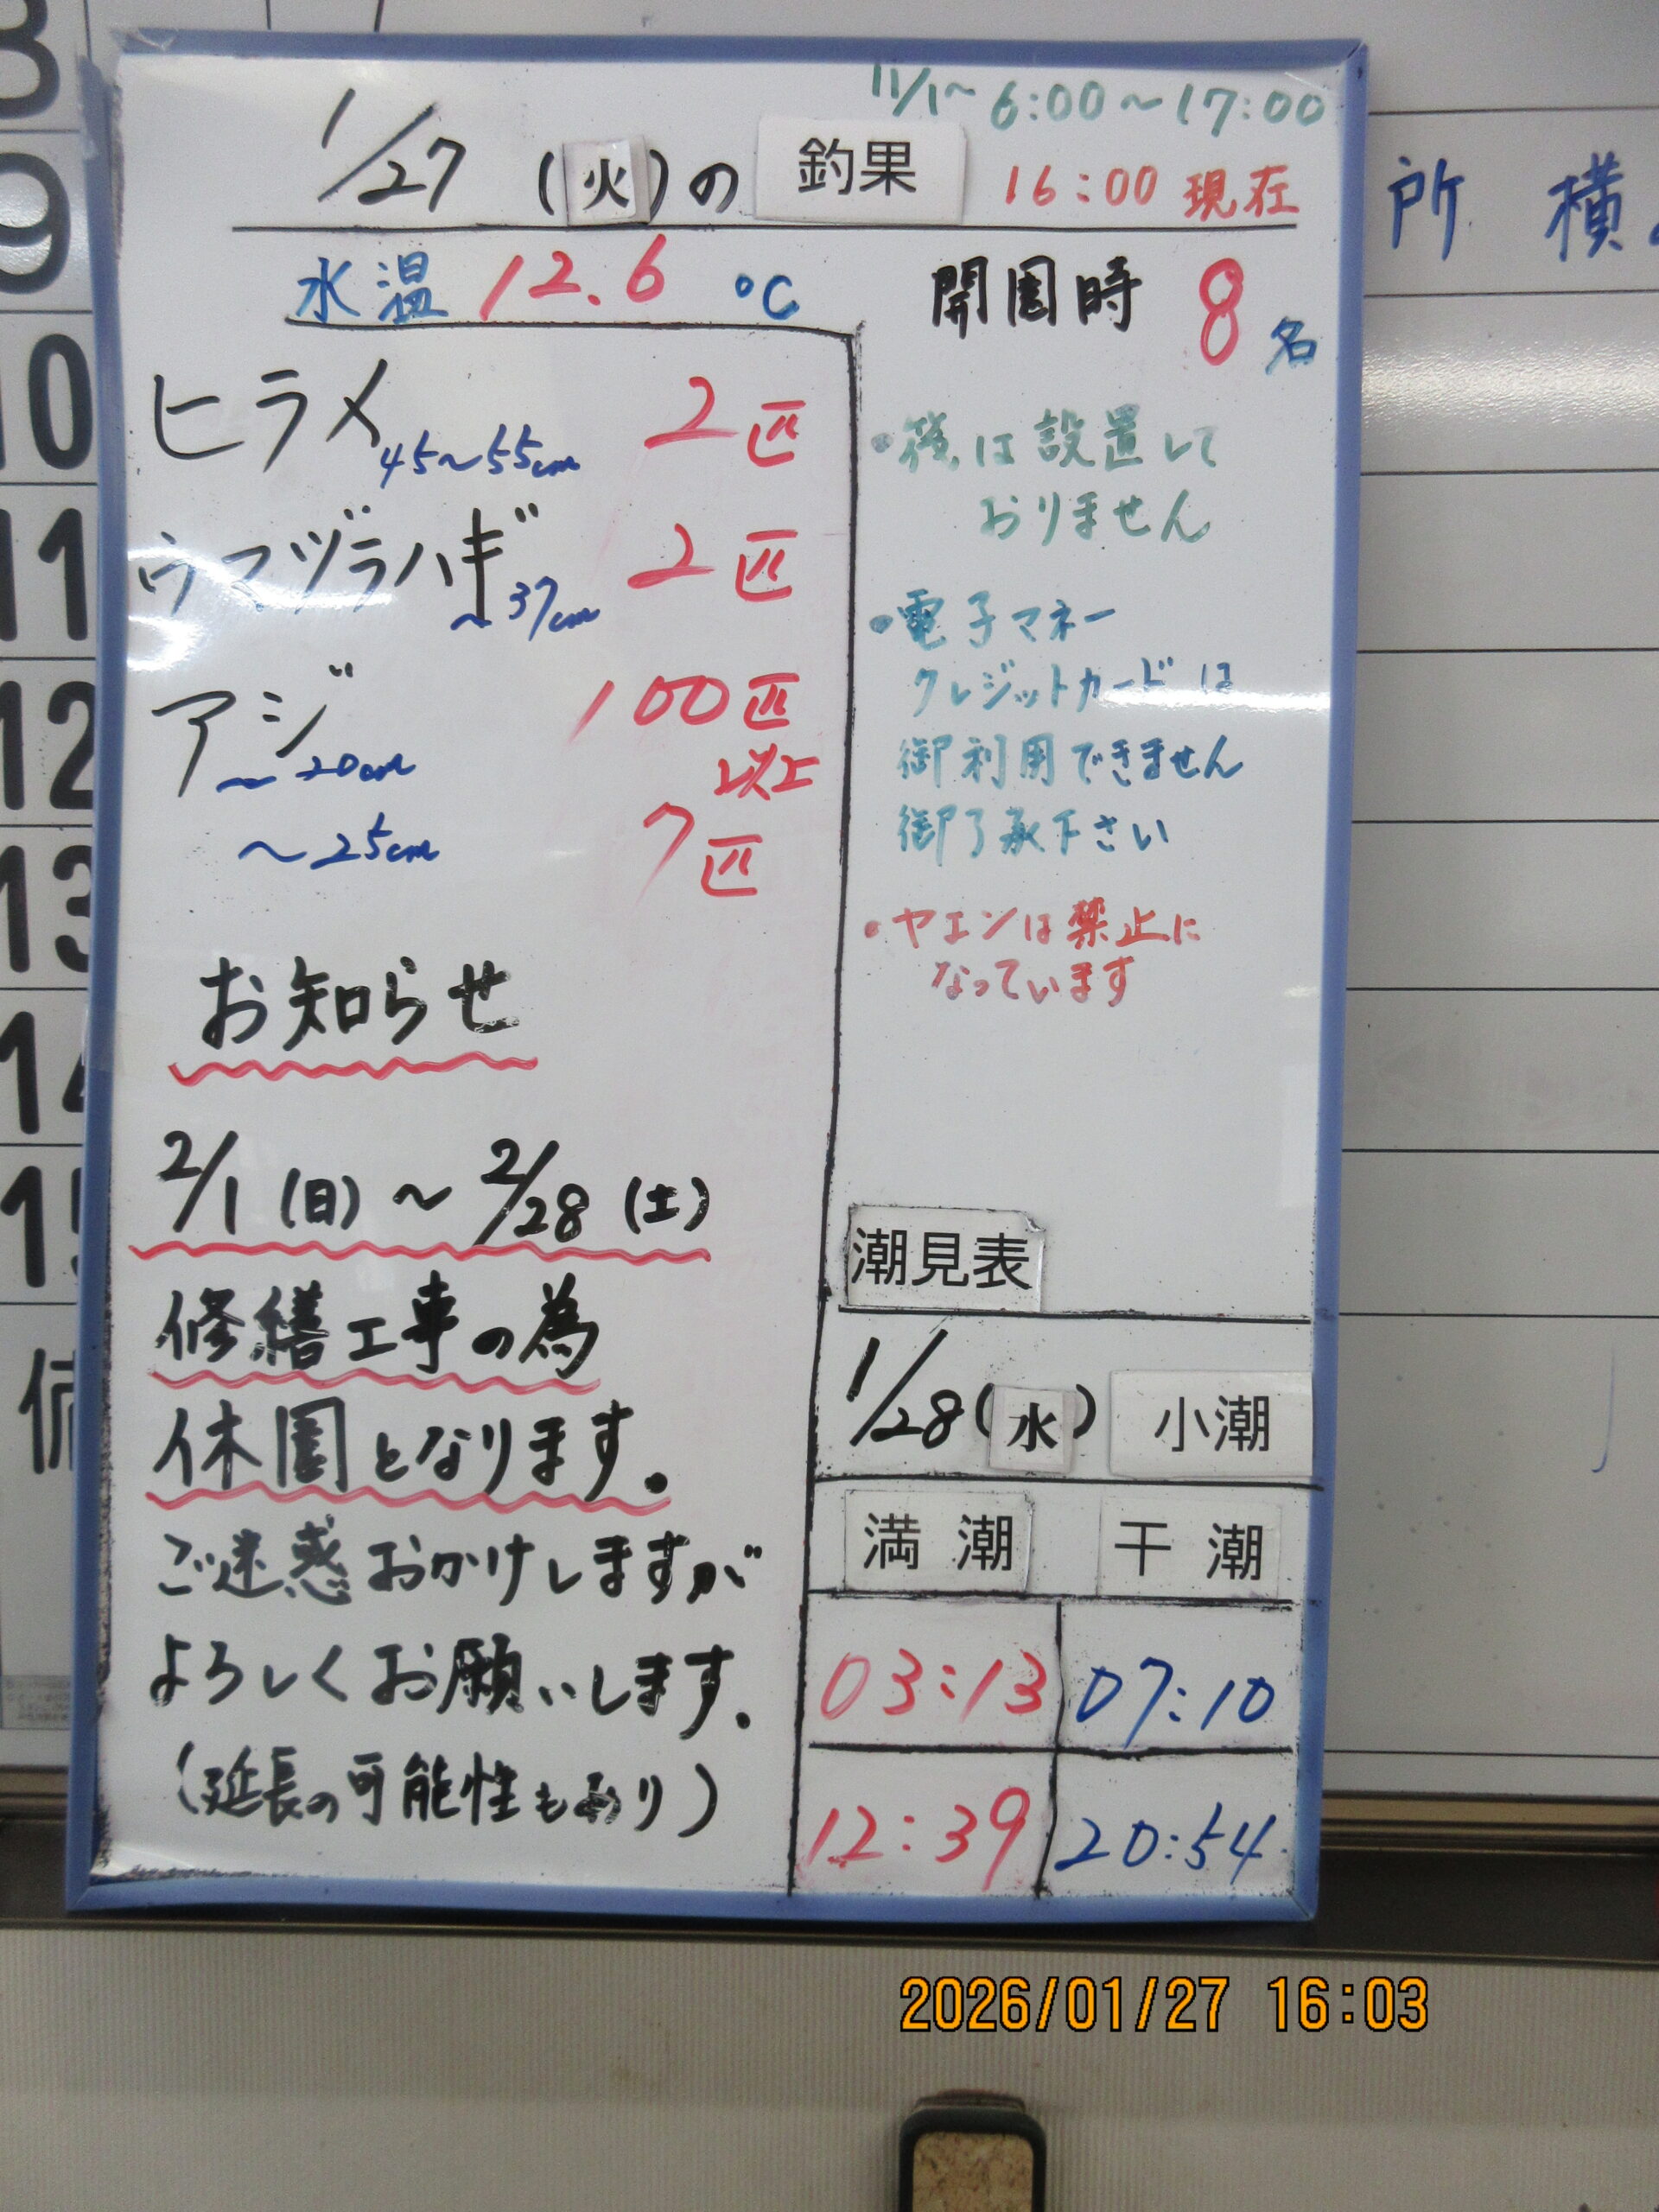 11/1~ 6:00~17:00
1/27 (火)の 釣果 16:00 現在
水温 12.6 ℃
開園時 8名
ヒラメ 45~55cm 2匹
ウマヅラハギ ~37cm 2匹
アジ ~20cm 100匹以上
~25cm 7匹
お知らせ
2/1(日)~2/28(土)
修繕工事の為
休園となります。
ご迷惑おかけしますが
よろしくお願いします。
(延長の可能性もあり)
・篊は設置して
おりません
・電子マネー
クレジットカードは
御利用できません
御了承下さい
・ヤエンは禁止に
なっています
潮見表
1/28(水) 小潮
満潮 干潮
03:13 07:10
12:39 20:54
所 横
9
10
11
12
13
14
2026/01/27 16:03